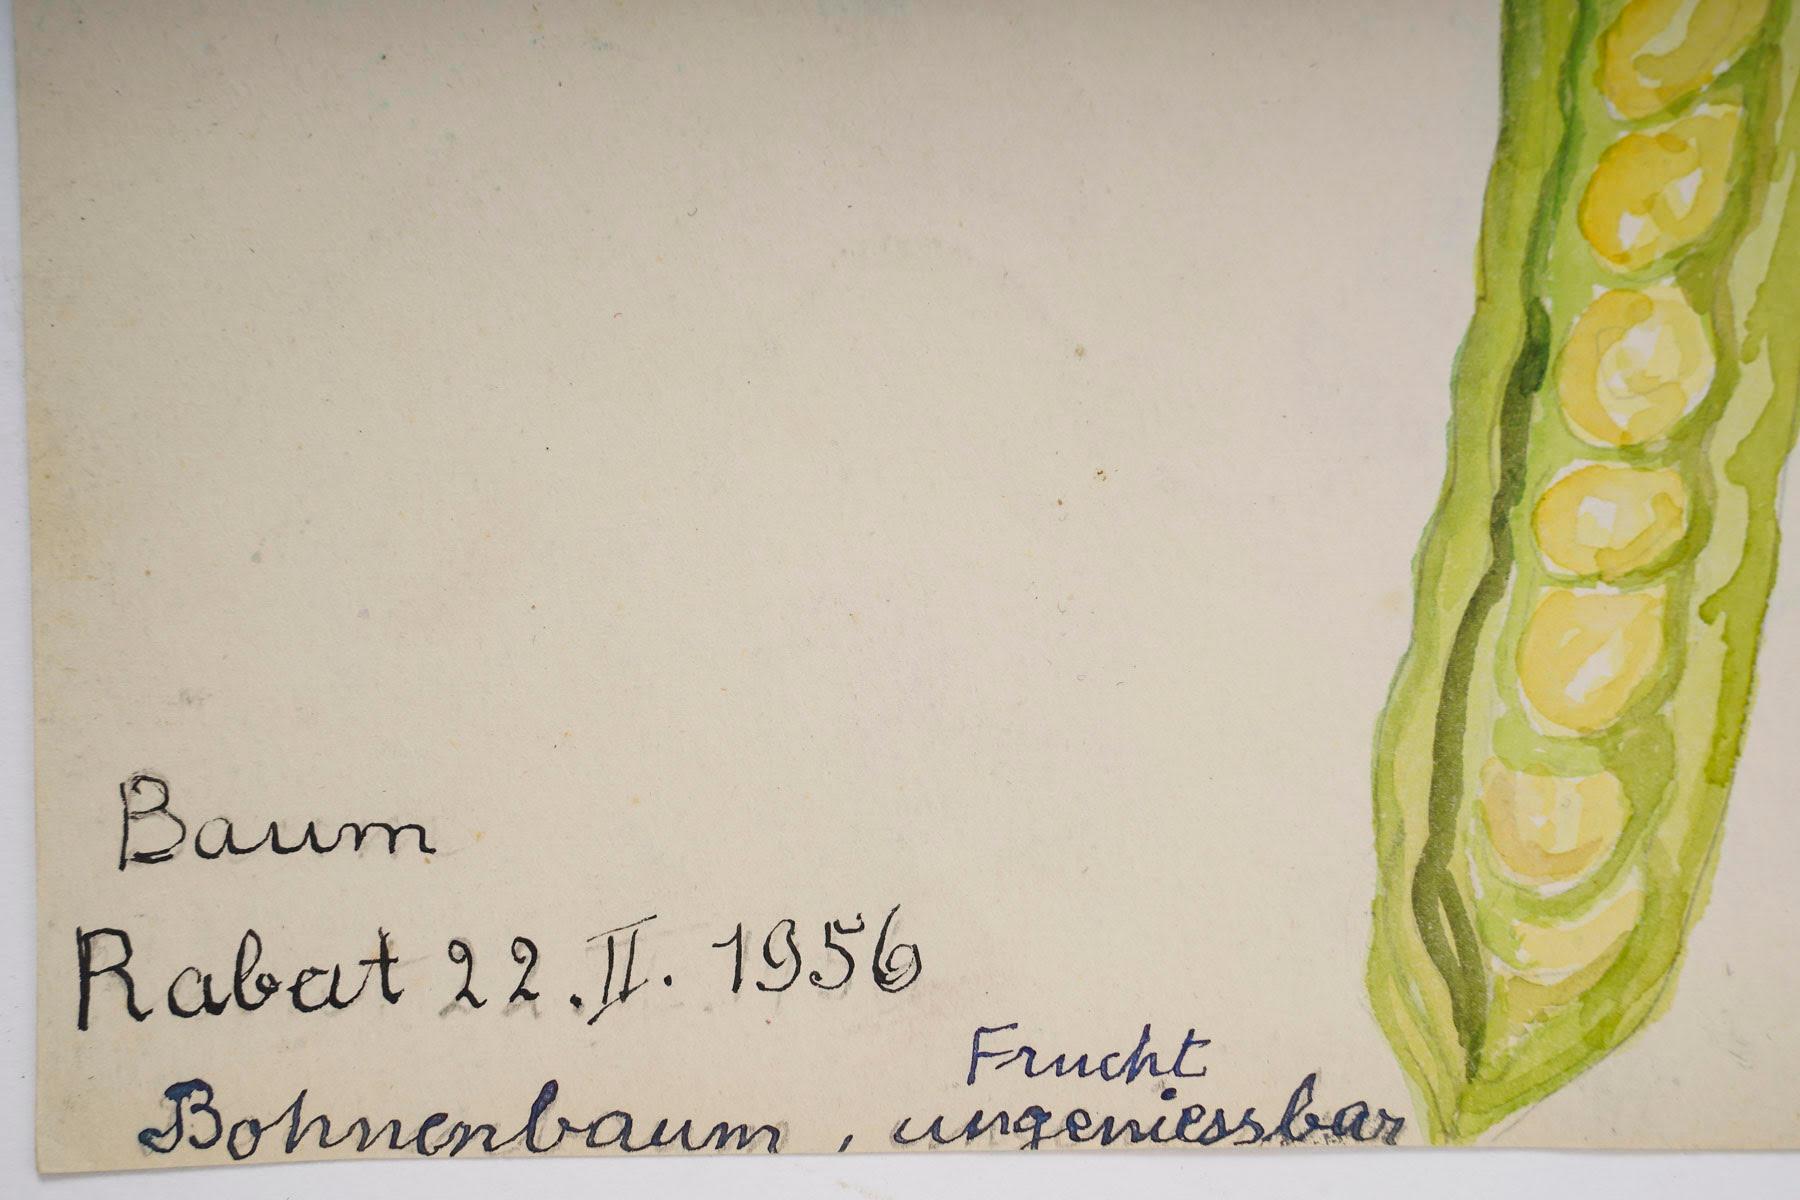 Baum
Rabat 22.II. 1956
Frucht
Bohnenbaum, ungeniessbar